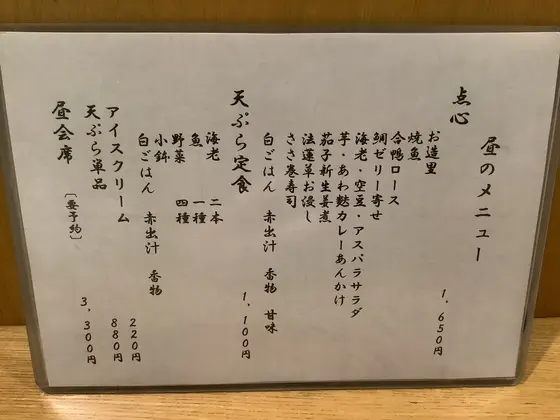 昼のメニュー
点心
お造里
焼魚
合鴨ロース
鯛ゼリー寄せ
海老・空豆・アスパラサラダ
芋・あわ麩カレーあんかけ
茄子新生姜煮
法蓮草お浸し
ささ巻寿司
白ごはん 赤出汁 香物 甘味
1,650円
天ぷら定食
海老 二本
魚 一種
野菜 四種
小鉢
白ごはん 赤出汁 香物
1,100円
アイスクリーム 220円
天ぷら単品 880円
昼会席 〔要予約〕 3,300円